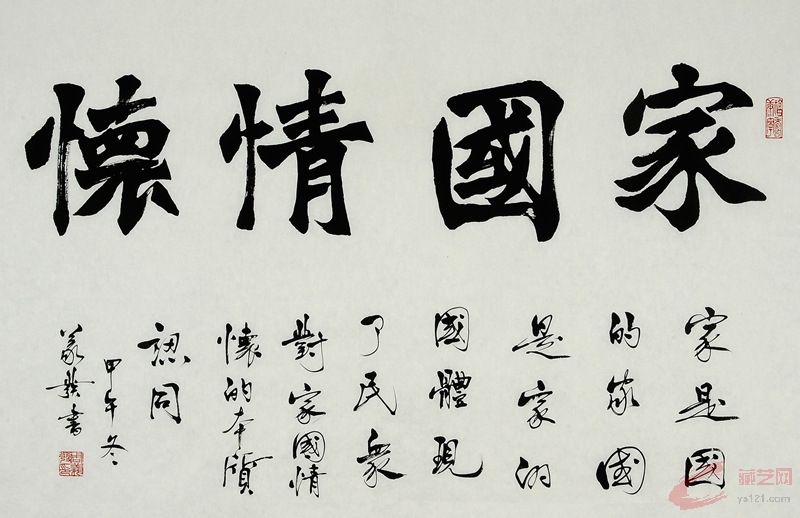 家國情懷
家是國
的家國
是家的
國體現
了民衆
對家國情
懷的本質
認同
甲午冬
義發書
藏艺网
ys121.com